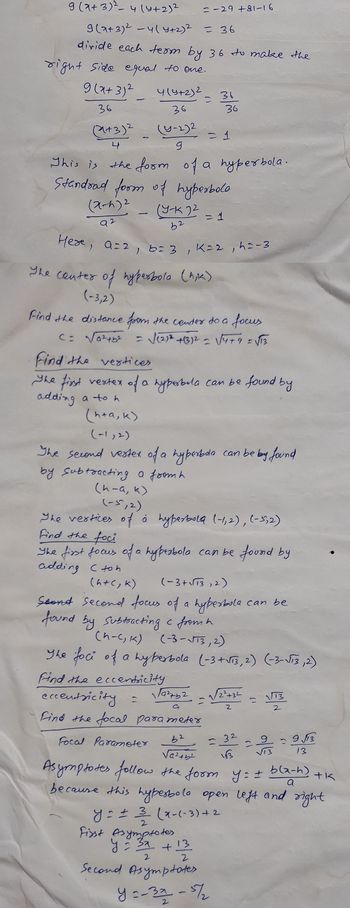 9(x+3)² - 4(y+2)² = -29+81-16
9(x+3)² - 4(y+2)² = 36
divide each term by 36 to make the
right side equal to one.
9(x+3)²/36 - 4(y+2)²/36 = 36/36
(x+3)²/4 - (y-2)²/9 = 1
This is the form of a hyperbola.
Standrad form of hyperbola
(x-h)²/a² - (y-k)²/b² = 1
Here, a=2, b=3, k=2, h=-3
The center of hyperbola (h,k)
(-3,2)
Find the distance from the center to a focus
c = √a²+b² = √(2)²+(3)² = √4+9 = √13
Find the vertices
The first vertex of a hyperbola can be found by
adding a to h
(h+a, k)
(-1,2)
The second vertex of a hyperbola can be by found
by subtracting a from h
(h-a, k)
(-5,2)
The vertices of a hyperbola (-1,2), (-5,2)
Find the foci
The first focus of a hyperbola can be found by
adding c to h
(h+c, k) (-3+√13, 2)
Second focus of a hyperbola can be
found by subtracting c from h
(h-c, k) (-3-√13, 2)
The foci of a hyperbola (-3+√13, 2) (-3-√13, 2)
Find the eccentricity
eccentricity = √a²+b²/a = √2²+3²/2 = √13/2
Find the focal parameter
Focal Parameter b²/√a²+b² = 3²/√13 = 9/√13 = 9√13/13
Asymptotes follow the form y = ± b(x-h)/a + k
because this hyperbola open left and right
y = ± 3/2 (x-(-3)+2
First Asymptotes
y = 3x/2 + 13/2
Second Asymptotes
y = -3x/2 - 5/2